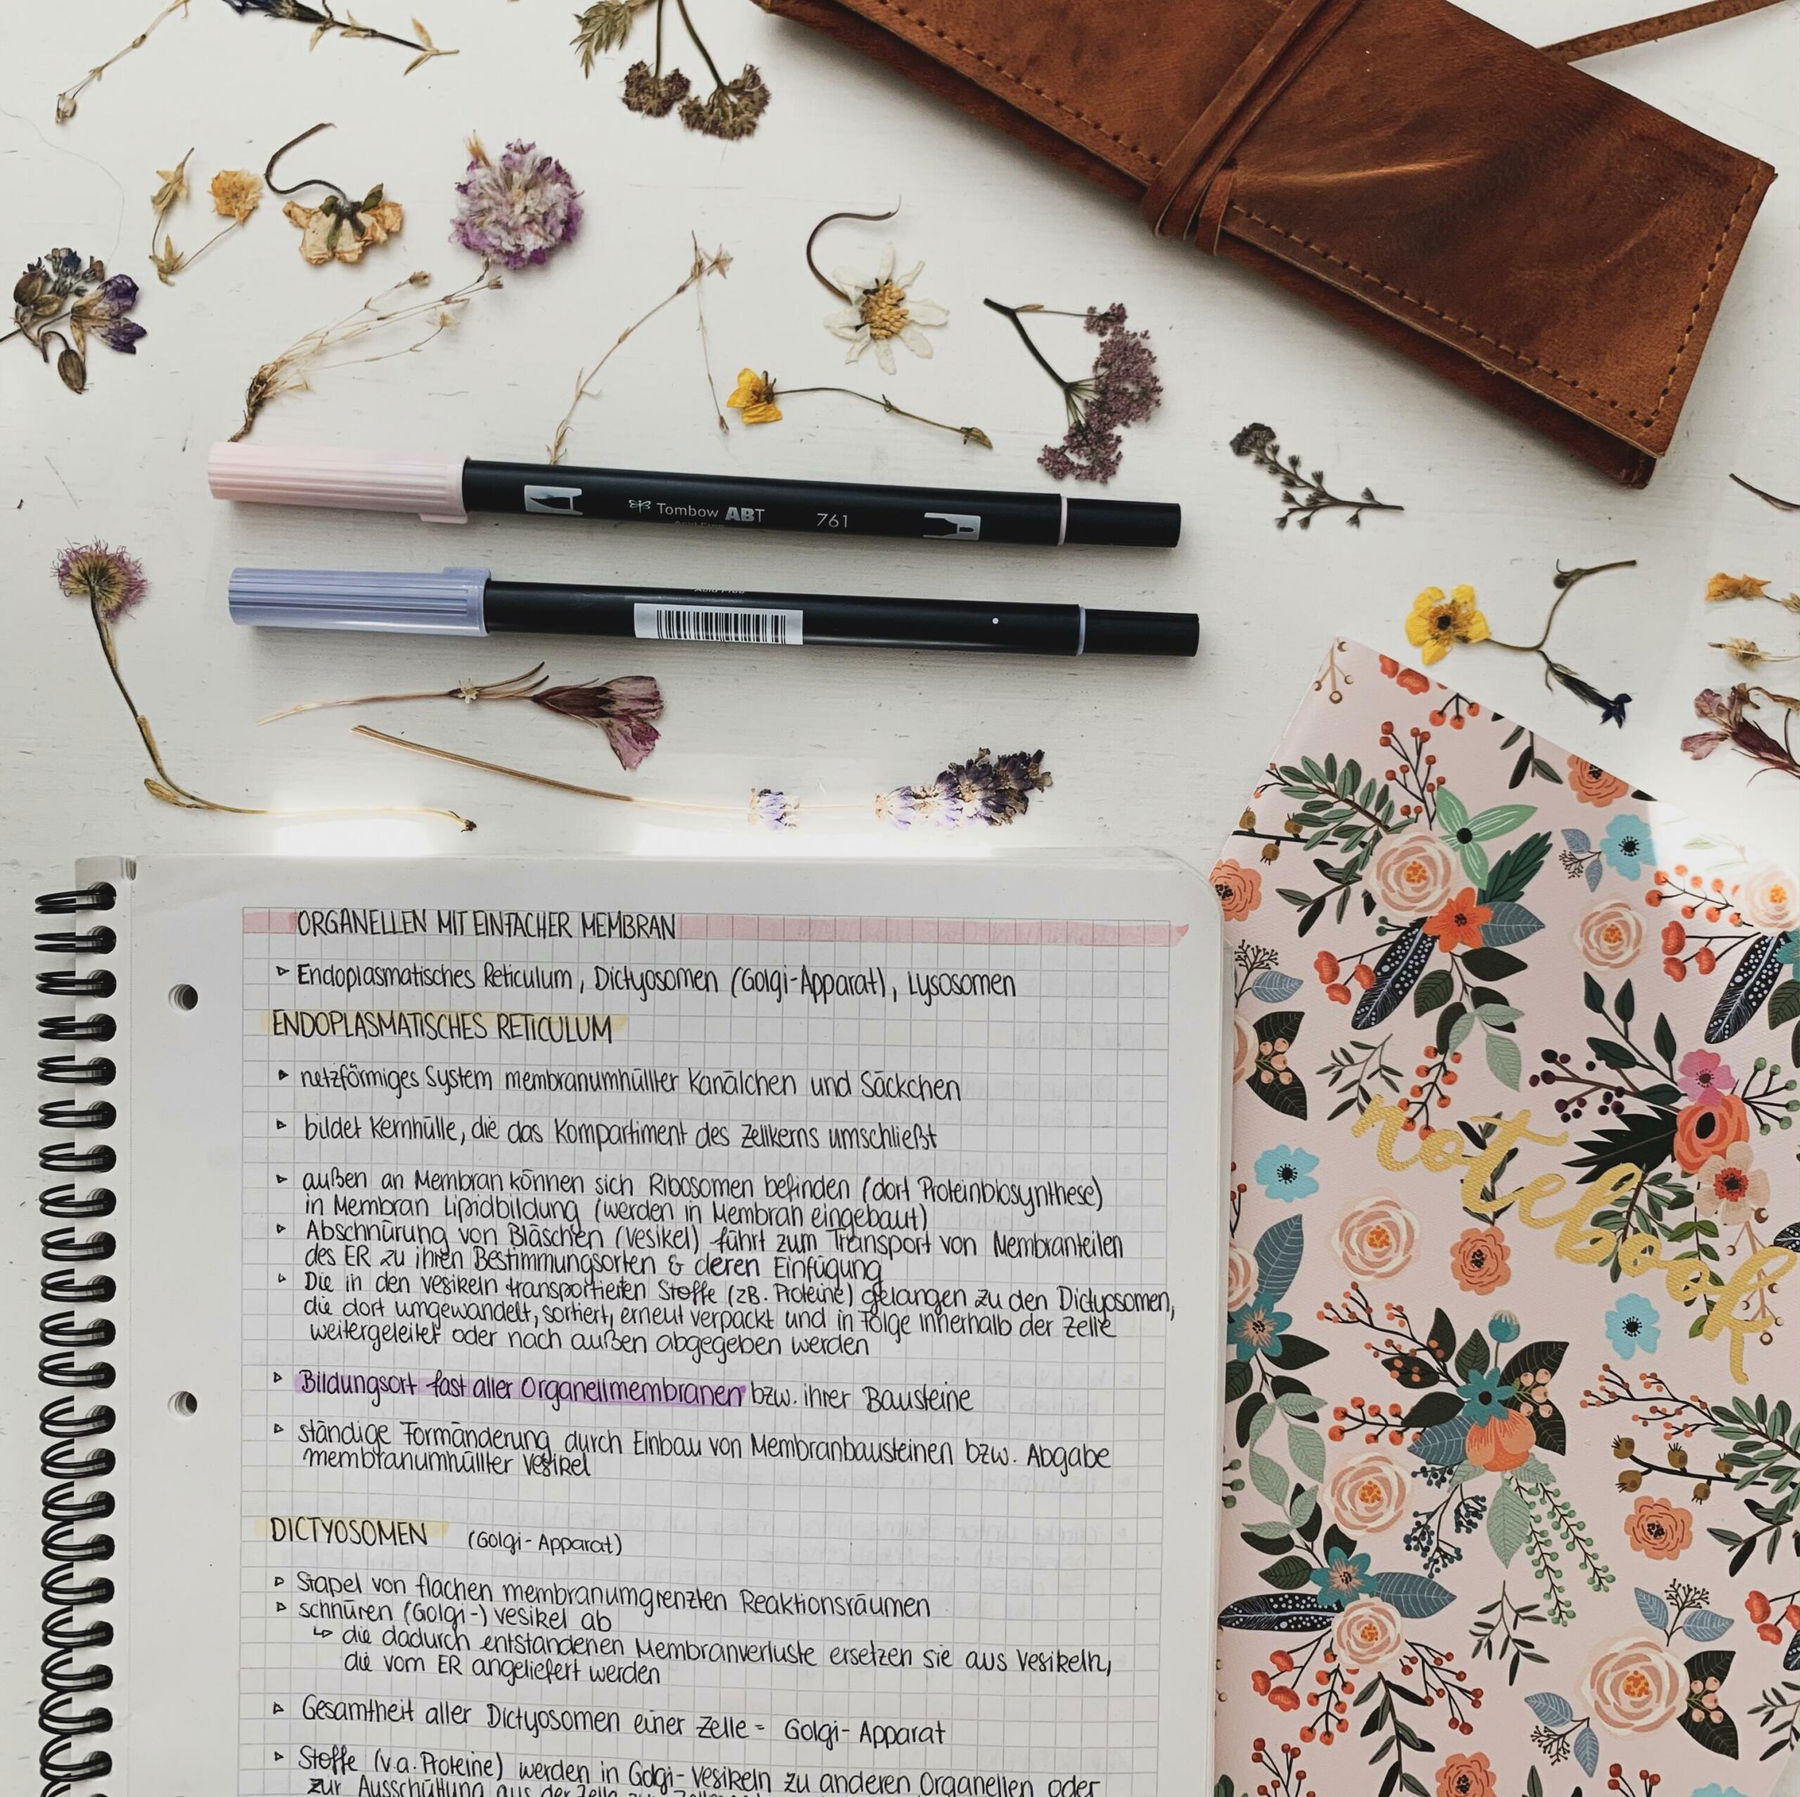 Tombow ABT 761
Acid Free
ORGANELLEN MIT EINFACHER MEMBRAN
▹ Endoplasmatisches Reticulum, Dictyosomen (Golgi-Apparat), Lysosomen
ENDOPLASMATISCHES RETICULUM
▹ netzförmiges System membranumhüllter Kanälchen und Säckchen
▹ bildet Kernhülle, die das Kompartiment des Zellkerns umschließt
▹ außen an Membran können sich Ribosomen befinden (dort Proteinbiosynthese)
in Membran Lipidbildung (werden in Membran eingebaut)
▹ Abschnürung von Bläschen (Vesikel) führt zum Transport von Membranteilen
des ER zu ihren Bestimmungsorten & deren Einfügung
▹ Die in den Vesikeln transportierten Stoffe (zB. Proteine) gelangen zu den Dictyosomen,
die dort umgewandelt, sortiert, erneut verpackt und in Folge innerhalb der Zelle
weitergeleitet oder nach außen abgegeben werden
▹ Bildungsort fast aller Organellmembranen bzw. ihrer Bausteine
▹ ständige Formänderung durch Einbau von Membranbausteinen bzw. Abgabe
membranumhüllter Vesikel
DICTYOSOMEN (Golgi-Apparat)
▹ Stapel von flachen membranumgrenzten Reaktionsräumen
▹ schnüren (Golgi-) Vesikel ab
↳ die dadurch entstandenen Membranverluste ersetzen sie aus Vesikeln,
die vom ER angeliefert werden
▹ Gesamtheit aller Dictyosomen einer Zelle = Golgi-Apparat
▹ Stoffe (v.a. Proteine) werden in Golgi-Vesikeln zu anderen Organellen oder
zur Ausschüttung aus der Zelle
notebook